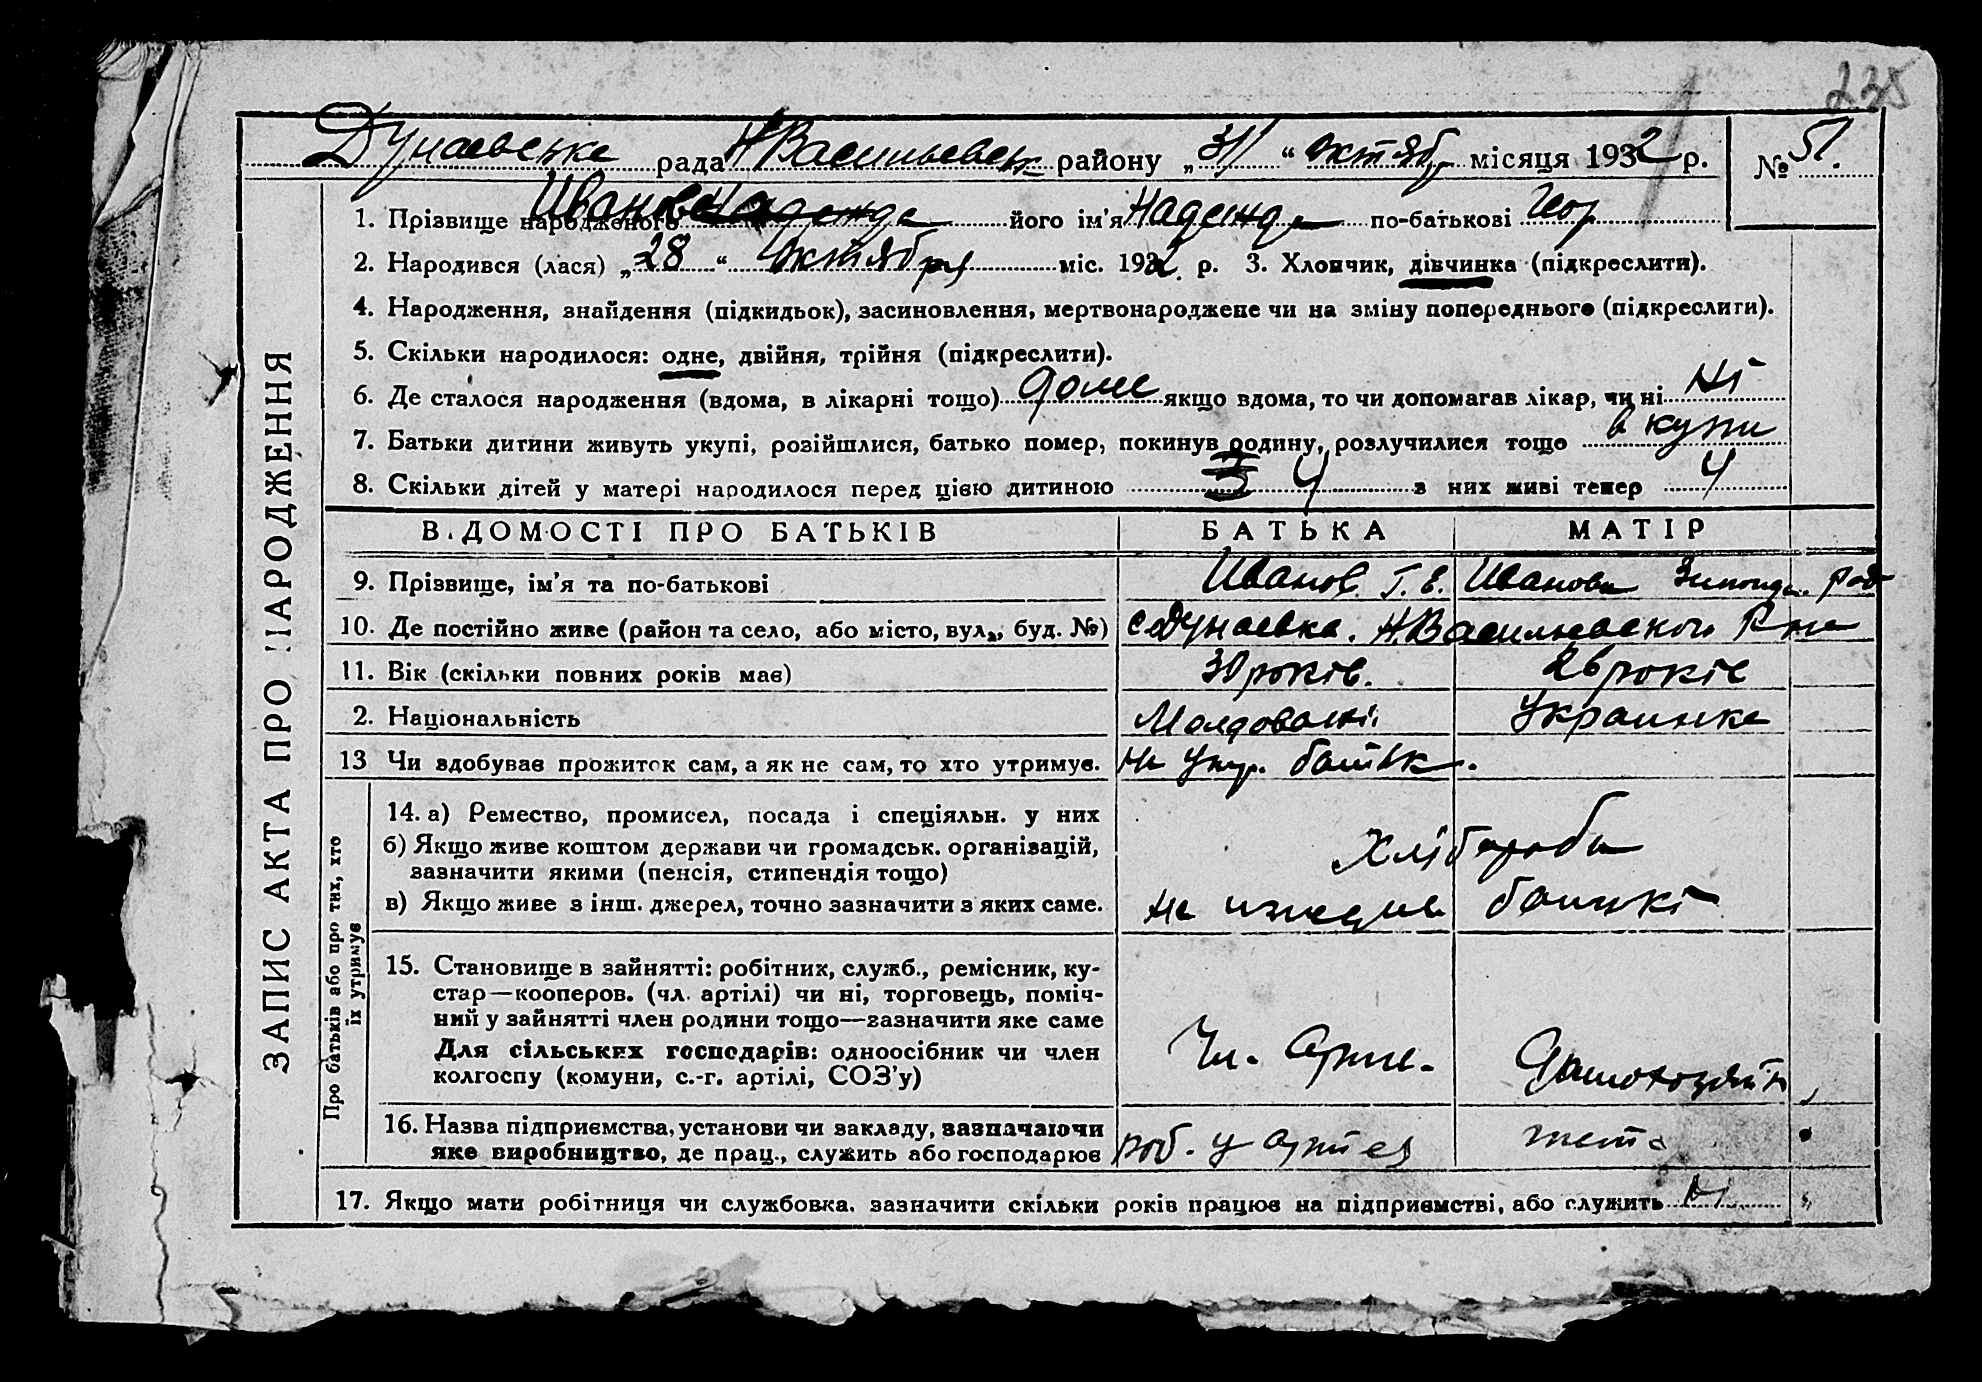 228
Дунаевське рада Н Васильевськ району „31“ октябр місяця 1932 р. № 51.
ЗАПИС АКТА ПРО НАРОДЖЕННЯ
1. Прізвище народженого Иванов Надежда його ім'я Надежда по-батькові Геор
2. Народився (лася) „28“ октября міс. 1932 р. 3. Хлопчик, дівчинка (підкреслити).
4. Народження, знайдення (підкидьок), засиновлення, мертвонароджене чи на зміну попереднього (підкреслити).
5. Скільки народилося: одне, двійня, трійня (підкреслити).
6. Де сталося народження (вдома, в лікарні тощо) доме якщо вдома, то чи допомагав лікар, чи ні ні
7. Батьки дитини живуть укупі, розійшлися, батько помер, покинув родину, розлучилися тощо в купи
8. Скільки дітей у матері народилося перед цією дитиною 3 4 з них живі тепер 4
В.ДОМОСТІ ПРО БАТЬКІВ БАТЬКА МАТІР
9. Прізвище, ім'я та по-батькові Иванов. Г. Е. Иванова
10. Де постійно живе (район та село, або місто, вул., буд. №) с Дунаевка. Н.Васильевского Р на
11. Вік (скільки повних років має) 30 років. 26 років
2. Національність Молдован. Украинка
13 Чи здобував прожиток сам, а як не сам, то хто утримує. На утр. батьк.
Про батьків або про тих, хто
їх утримує
14. а) Ремество, промисел, посада і спеціяльн. у них
б) Якщо живе коштом держави чи громадськ. організацій,
зазначити якими (пенсія, стипендія тощо) Хлібороби
в) Якщо живе з інш. джерел, точно зазначити з яких саме. На батькі
15. Становище в зайнятті: робітник, служб., ремісник, ку-
стар—кооперов. (чл. артілі) чи ні, торговець, поміч-
ний у зайнятті член родини тощо—зазначити яке саме
Для сільських господарів: одноосібник чи член
колгоспу (комуни, с.-г. артілі, СОЗ'у) Чл. Арте. Домохозяйк
16. Назва підприємства, установи чи закладу, зазначаючи
яке виробництво, де прац., служить або господарює роб. у артел
17. Якщо мати робітниця чи службовка, зазначити скільки років працює на підприємстві, або служить ні